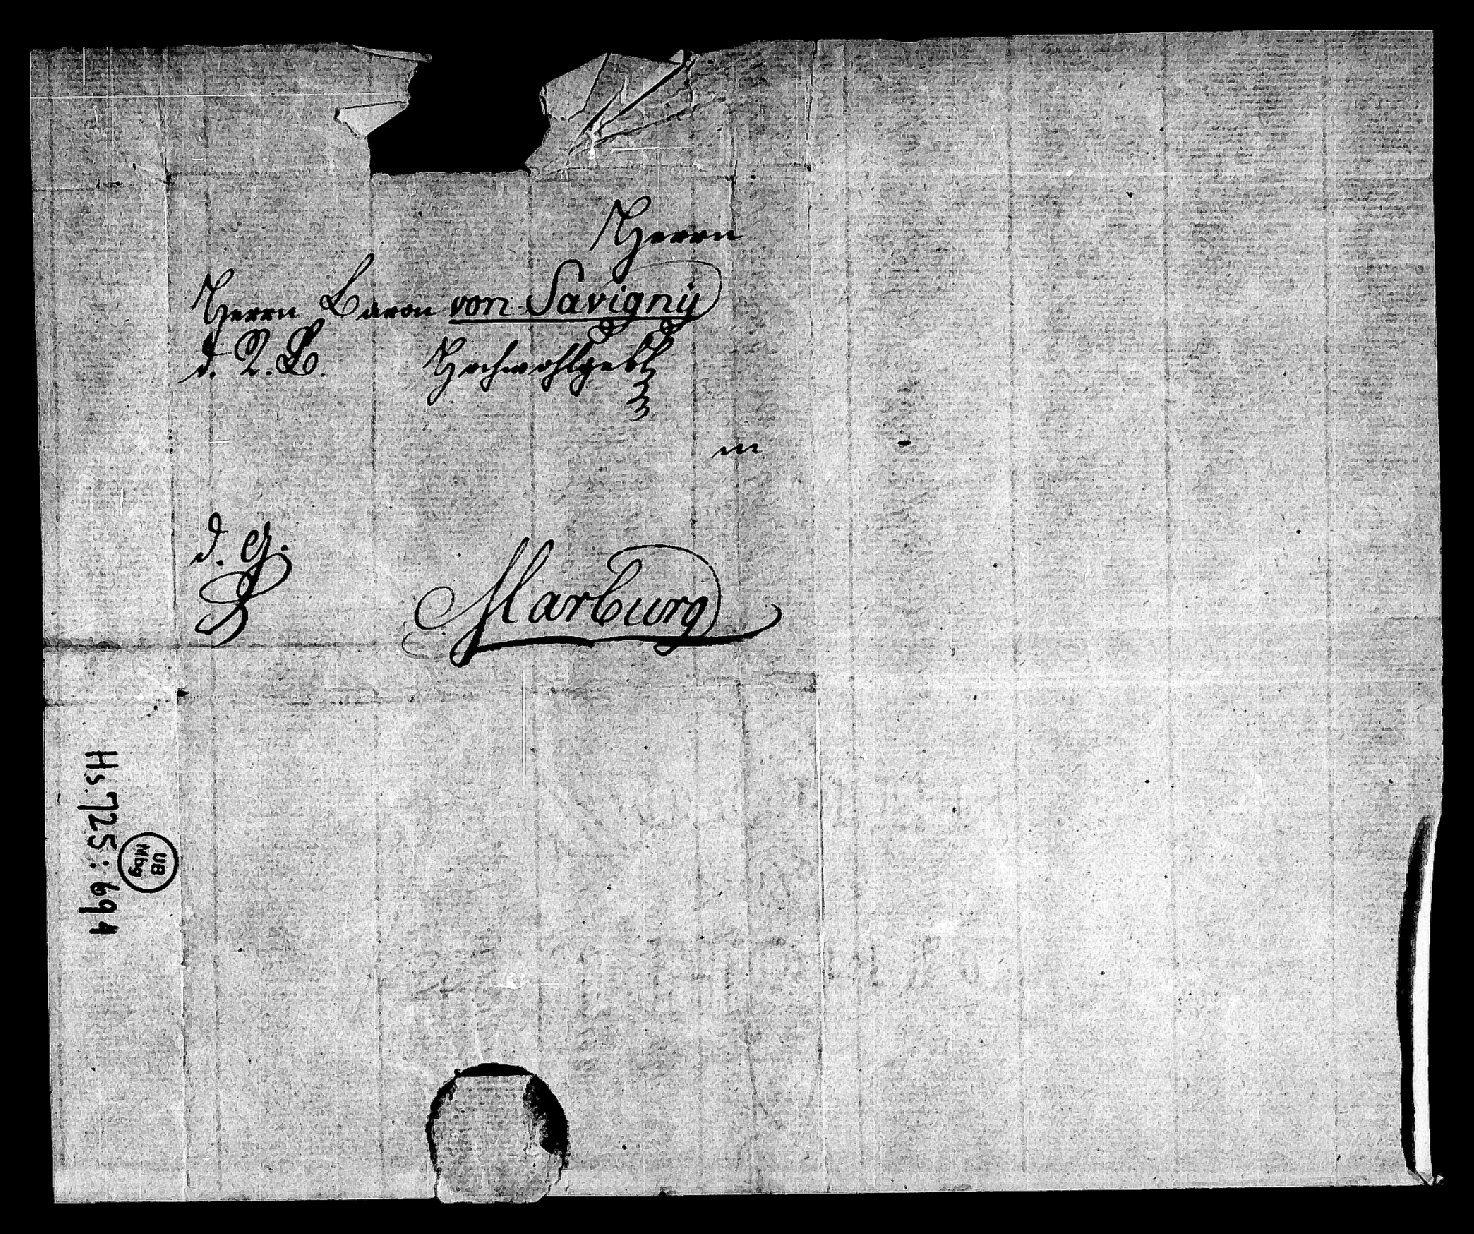 Herrn
Herrn Baron von Savigny
d. R. L. Hochwohlgeb
in
d. G. Marburg
Hs. 725:694
UB
Mbg